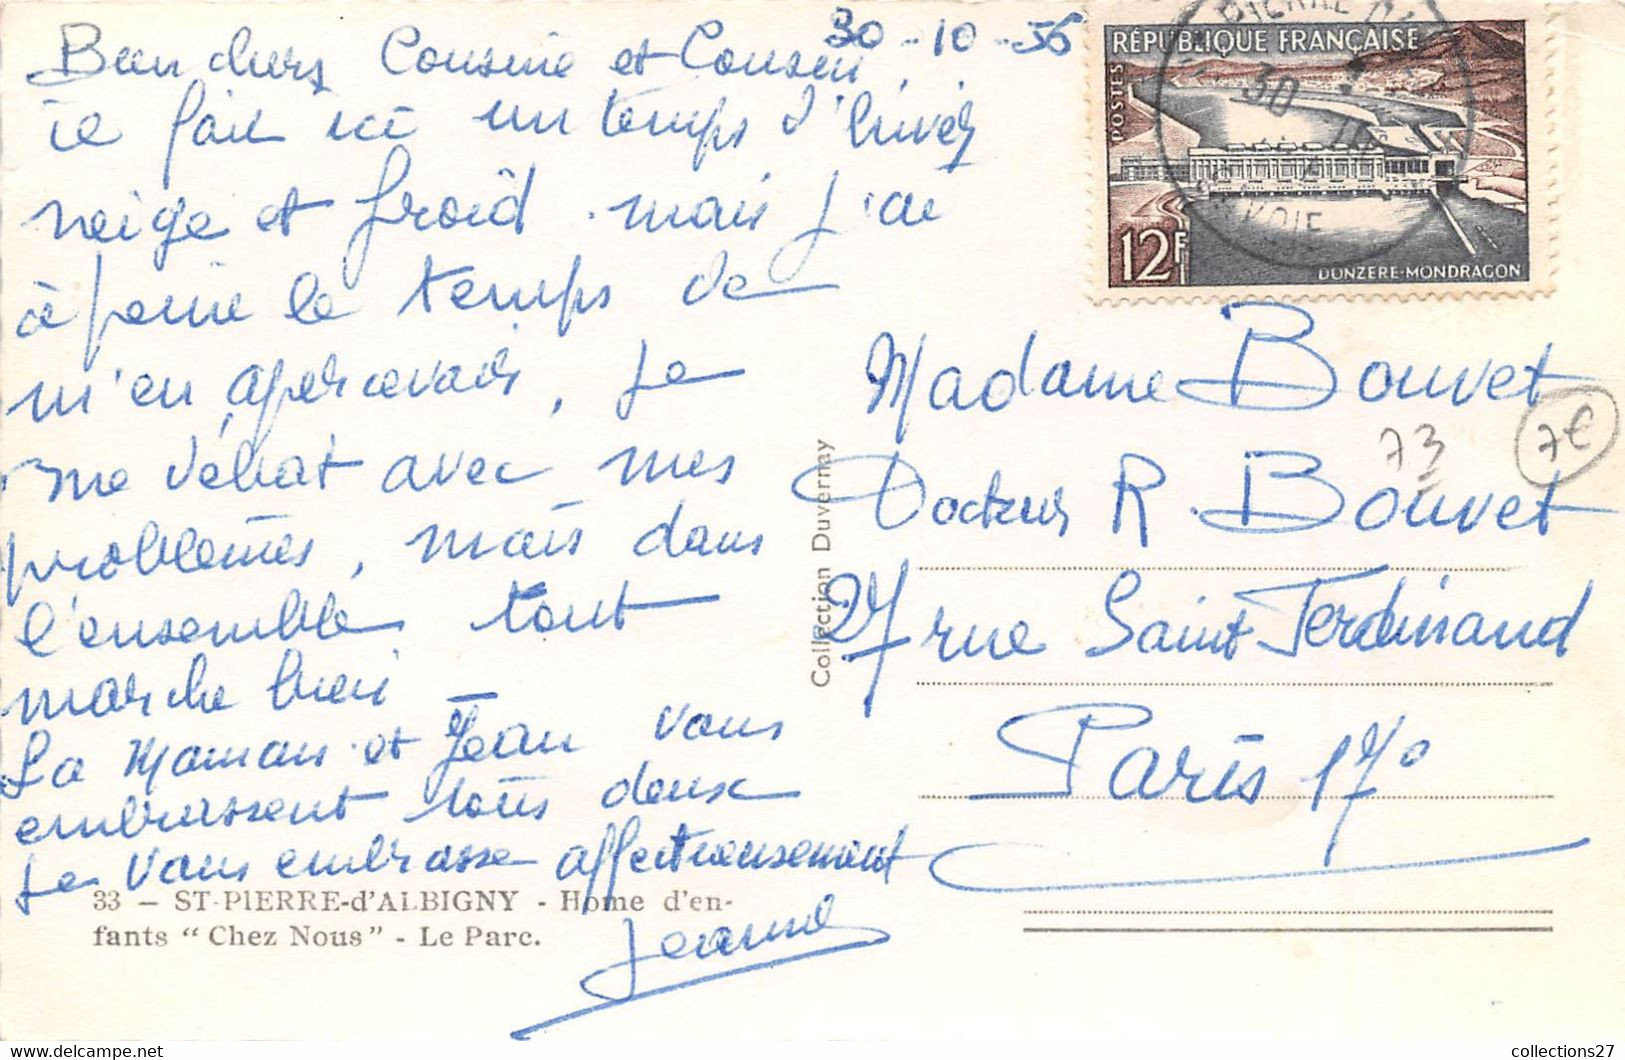 30-10-56
Bien chers Cousine et Cousin,
il fait ici un temps d'hiver
neige et froid. mais j'ai
à peine le temps de
m'en apercevoir, je
me débat avec mes
problèmes, mais dans
l'ensemble tout
marche bien
La Maman et Jean vous
embrassent tous deux
je vous embrasse affectueusement
Jeanne
33 - ST-PIERRE-d'ALBIGNY - Home d'en-
fants "Chez Nous" - Le Parc.
Collection Duvernay
RÉPUBLIQUE FRANÇAISE
POSTES
12F
DONZÈRE-MONDRAGON
PIERRE D'
30
Madame Bouvet
Docteur R. Bouvet
27 rue Saint Ferdinand
Paris 17°
73
7€
collections27